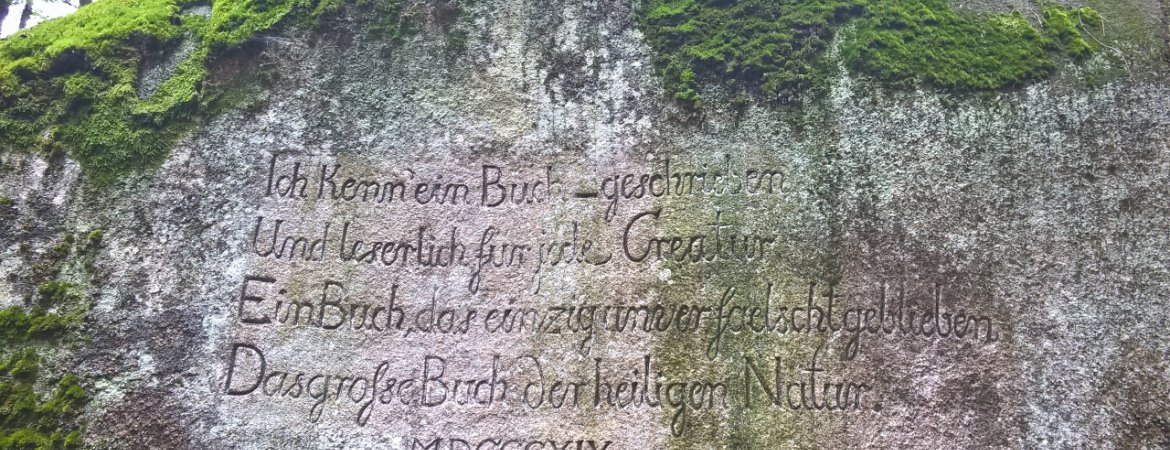 Ich Kenn' ein Buch – geschrieben
Und leserlich für jede Creatur
Ein Buch, das einzig unverfaelscht geblieben.
Das große Buch der heiligen Natur.
MDCCCXIX